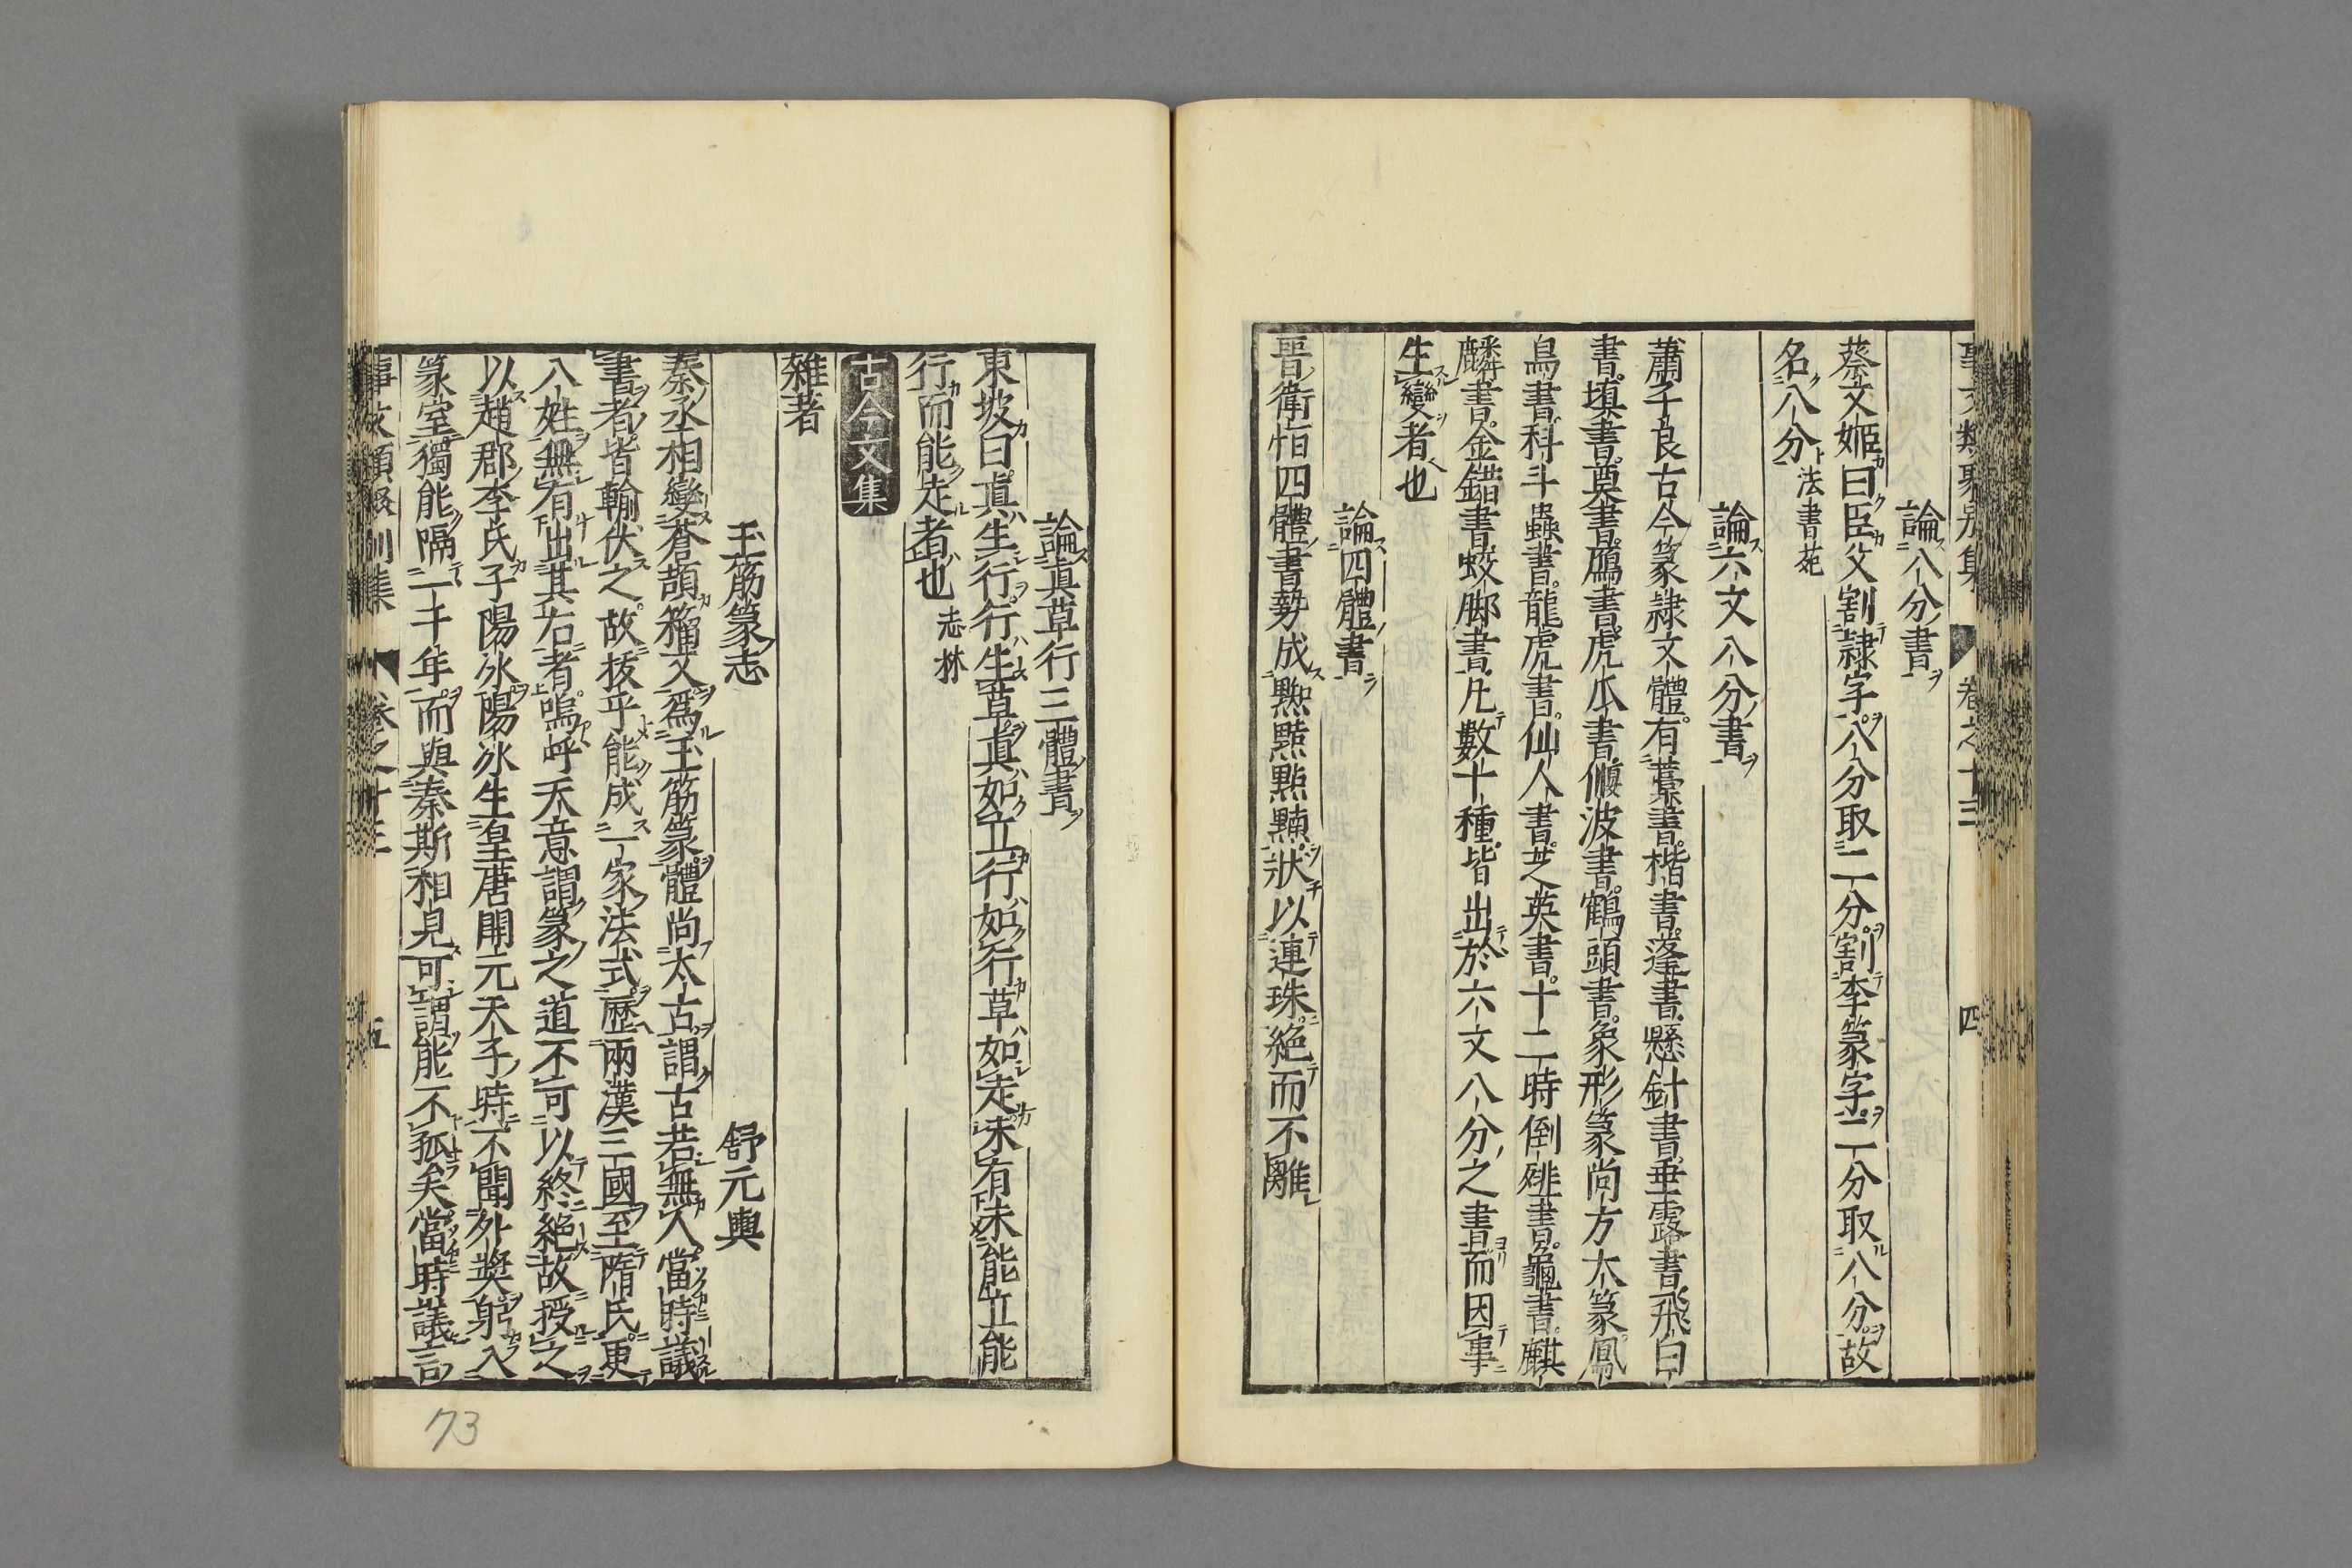 事文類聚別集 卷之十三 四
論八分書
蔡文姬曰臣父割隷字八分取二分割李篆字二分取八分故
名八分法書苑
論六文八分書
蕭子良古今篆隷文體有藁書楷書蓬書懸針書垂露書飛白
書塡書奠書鴈書虎爪書偃波書鶴頭書象形篆尚方大篆鳳
鳥書科斗蟲書龍虎書仙人書芝英書十二時倒薤書龜書麒
麟書金錯書蛟脚書凡數十種皆出於六文八分之書而因事
生變者也
論四體書
晋衛恒四體書勢成點點點狀以連珠絶而不離
論眞草行三體書
東坡曰眞生行行生草眞如立行如行草如走未有未能立能
行而能走者也志林
古今文集
雜著
玉筯篆志 舒元輿
秦丞相變蒼頡籕文爲玉筯篆體尚太古謂古若無人當時議
書者皆輸伏之故拔乎能成一家法式歷兩漢三國至隋氏更
八姓無有出其右者嗚呼天意謂篆之道不可以終絶故授之
以趙郡李氏子陽冰陽冰生皇唐開元天子時不聞外奬躬入
篆室獨能隔一千年而與秦斯相見可謂能不孤矣當時議言
事文類聚別集 卷之十三 五
73